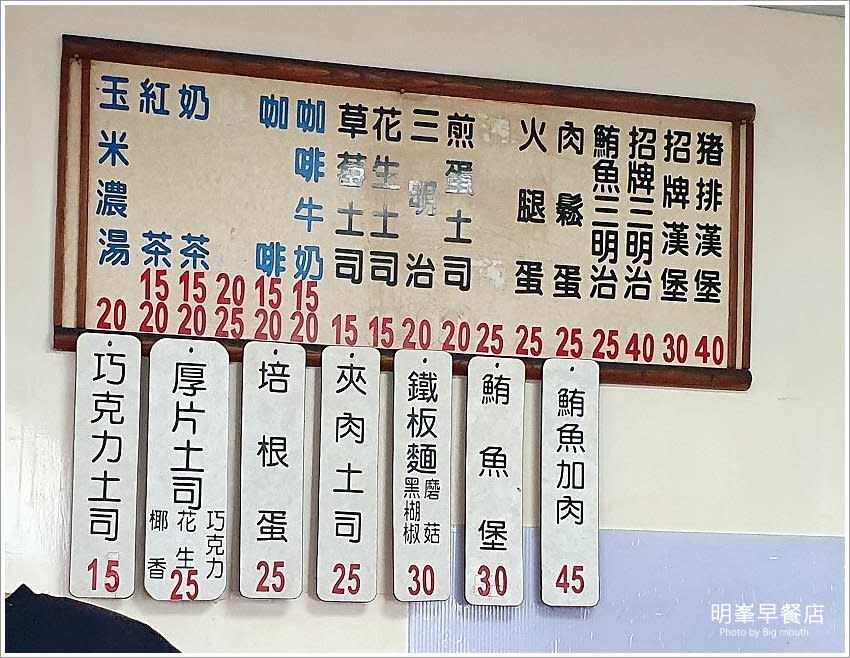 猪排漢堡 40
招牌漢堡 30
招牌三明治 40
鮪魚三明治 25
肉鬆蛋 25
火腿蛋 25
25
煎蛋土司 20
三明治 20
花生土司 15
草莓土司 15
咖啡牛奶 15 20
咖啡 15 20
20 25
奶茶 15 20
紅茶 15 20
玉米濃湯 20
鮪魚加肉 45
鮪魚堡 30
鐵板麵 磨菇 黑椒 30
夾肉土司 25
培根蛋 25
厚片土司 巧克力 花生 椰香 25
巧克力土司 15
明峯早餐店
Photo by Big mouth